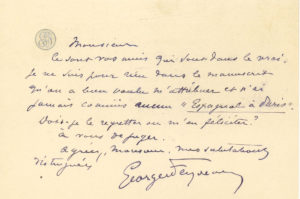 Monsieur
Ce sont vos amis qui sont dans le vrai.
Je ne suis pour rien dans le manuscrit
qu'on a bien voulu m'attribuer et n'ai
jamais commis aucun "Espagnol à Paris".
Dois-je le regretter ou m'en féliciter?
à vous de juger.
Agréez, Monsieur, mes salutations
distinguées
Georges Feydeau